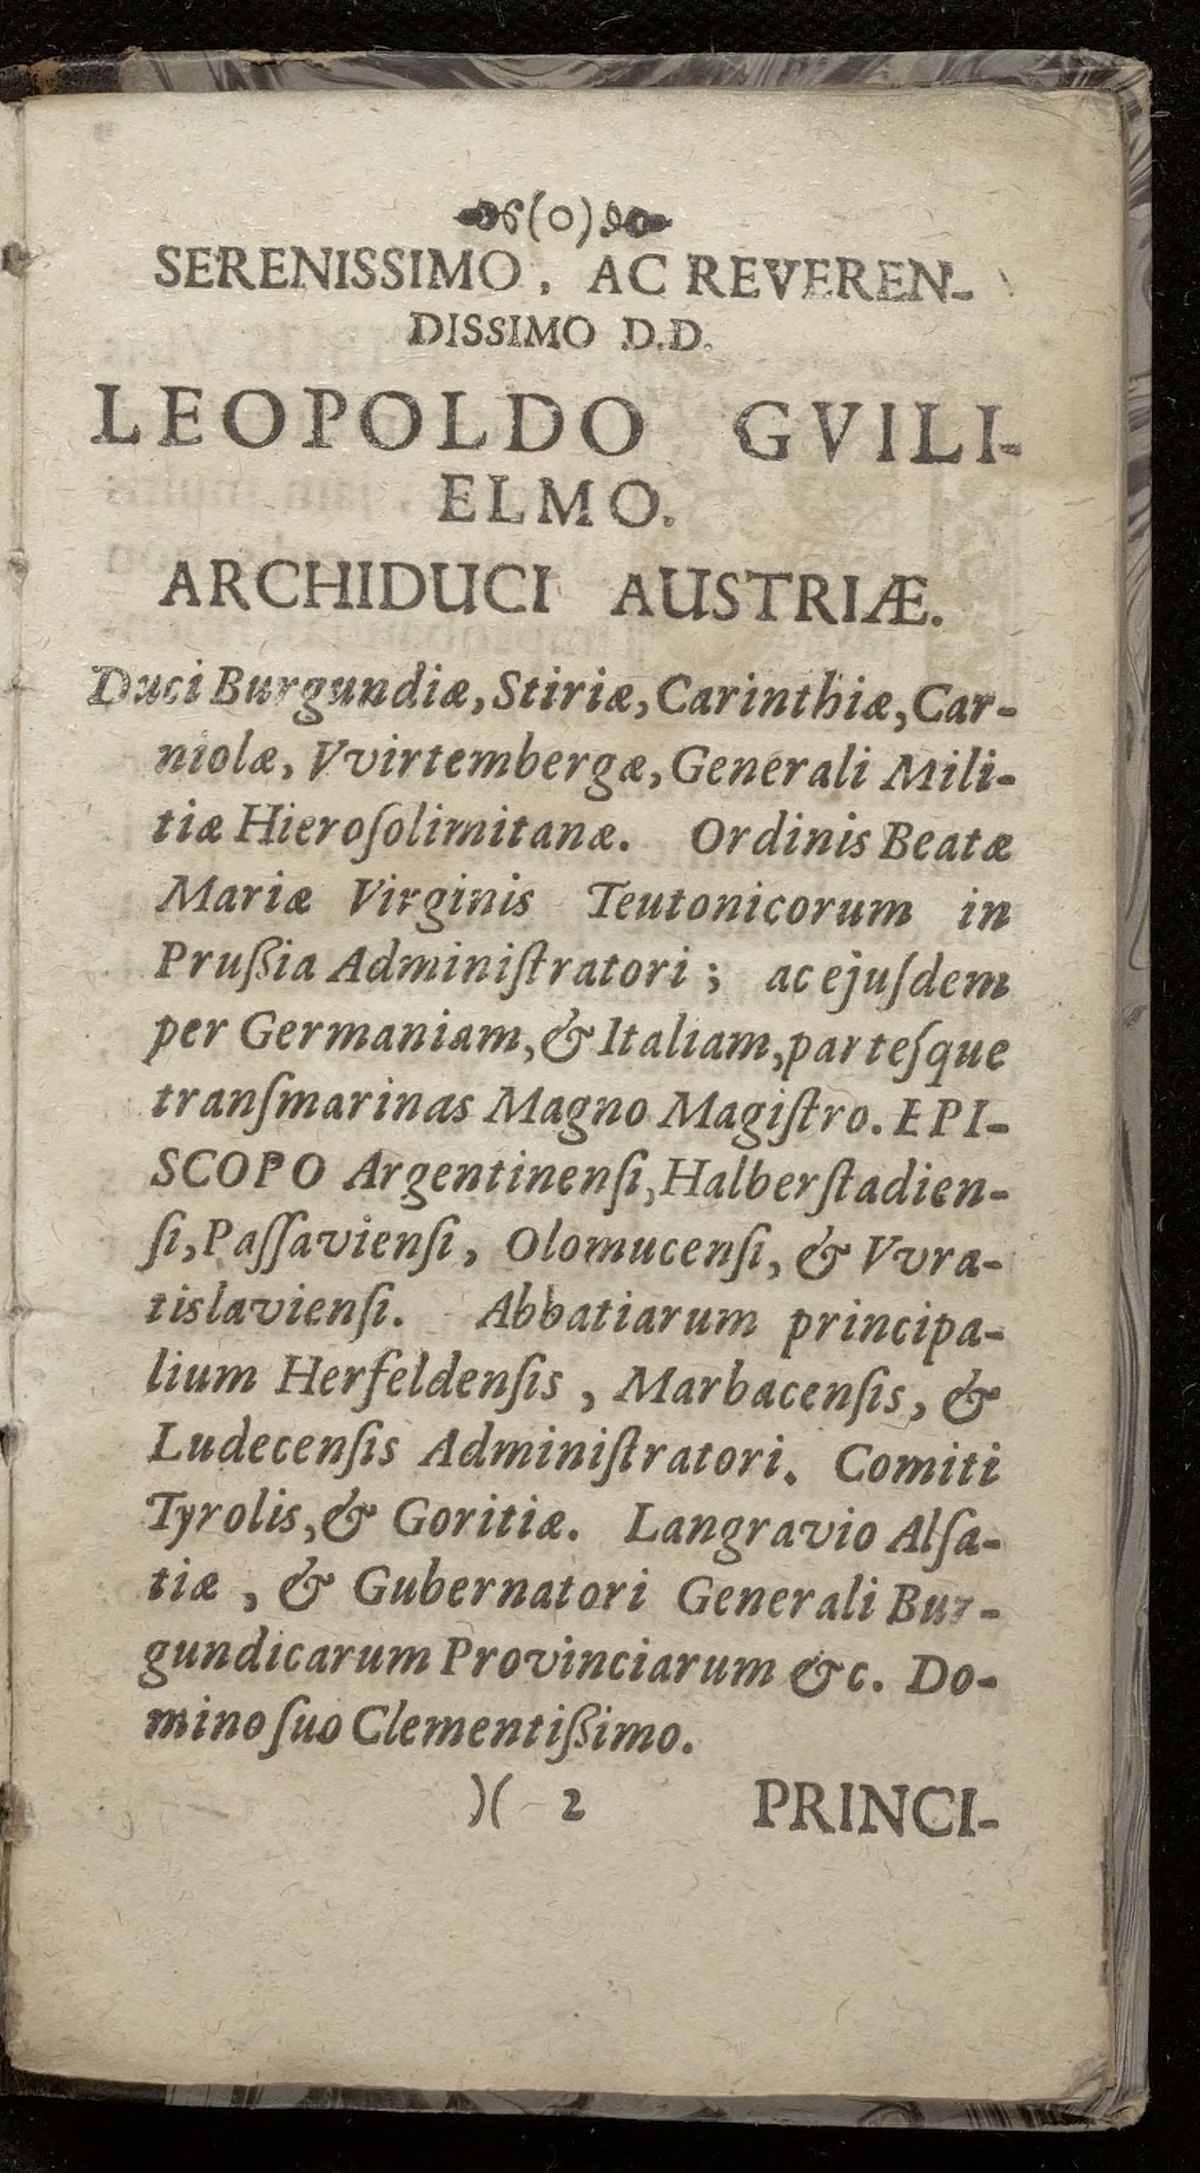 (0)
SERENISSIMO, AC REVEREN-
DISSIMO D.D.
LEOPOLDO GVILI-
ELMO.
ARCHIDUCI AUSTRIÆ.
Duci Burgundiæ, Stiriæ, Carinthiæ, Car-
niolæ, Vvirtembergæ, Generali Mili-
tiæ Hieroſolimitanæ. Ordinis Beatæ
Mariæ Virginis Teutonicorum in
Pruſsia Adminiſtratori; ac ejuſdem
per Germaniam, & Italiam, parteſque
tranſmarinas Magno Magiſtro. EPI-
SCOPO Argentinenſi, Halberſtadien-
ſi, Paſſavienſi, Olomucenſi, & Vvra-
tislavienſi. Abbatiarum principa-
lium Herfeldenſis, Marbacenſis, &
Ludecenſis Adminiſtratori. Comiti
Tyrolis, & Goritiæ. Langravio Alſa-
tiæ, & Gubernatori Generali Bur-
gundicarum Provinciarum &c. Do-
mino ſuo Clementiſsimo.
)( 2 PRINCI-